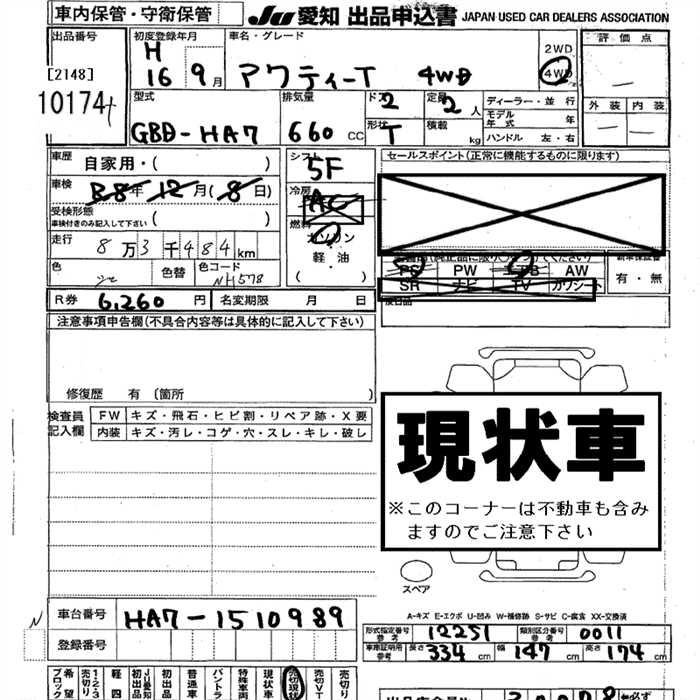 車内保管・守衛保管
JU 愛知 出品申込書 JAPAN USED CAR DEALERS ASSOCIATION
出品番号
[2148]
10174
初度登録年月
H
16 9月
車名・グレード
アクティーT 4WD
2WD
4WD
評価点
外装 内装
型式
GBD-HA7
排気量
660 CC
ドア 2
形状 T
定員 2人
積載 kg
ディーラー・並行
モデル年式 年
ハンドル 左・右
車歴
自家用・( )
車検
年12月(8日)
受検形態
車検付きのみ記入して下さい ( )
走行
8万3千484km
色
色替
色コード
NH578
シフト
5F
冷房
AC
燃料
ガソリン
軽・油
( )
セールスポイント(正常に機能するものに限ります)
PS PW AB AW
SR ナビ TV カワシート
有・無
R券 6,260円
名変期限 月 日
注意事項申告欄(不具合内容等は具体的に記入して下さい)
修復歴 有〔箇所 )
検査員
記入欄
FW キズ・飛石・ヒビ割・リペア跡・X要
内装 キズ・汚レ・コゲ・穴・スレ・キレ・破し
現状車
※このコーナーは不動車も含み
ますのでご注意下さい
スペア
A-キズ E-エクボ U-凹み W-補修跡 S-サビ C-腐食 XX-交換済
N
車台番号 HA7-1510989
登録番号
形式指定番号 参考 12251
類別区分番号 参考 0011
車庫証明用 参考 長さ 334 cm 幅 147 cm 高さ 174 cm
希望ブロック
売切り123
軽四
JU愛知初出品
初出品
普通車
バントラ
特殊車両
現状車
売切現状
売切VT
売切り